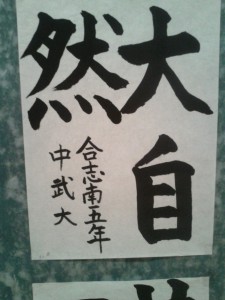 大自
然
合志南五年
中武大